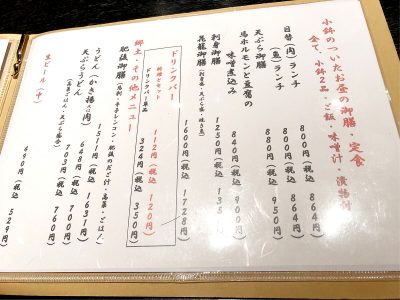 小鉢のついたお昼の御膳・定食
全て、小鉢2品・ご飯・味噌汁・漬物付
日替(肉)ランチ 800円(税込 864円)
(魚)ランチ 800円(税込 864円)
天ぷら御膳 880円(税込 950円)
馬ホルモンと豆腐の
味噌煮込み 840円(税込 900円)
刺身御膳 1250円(税込 135
花籠御膳 1600円(税込 1728円)
ドリンクバー
料理とセット 112円(税込 120円)
ドリンクバー単品 324円(税込 350円)
郷土・その他メニュー
肥後御膳 1511円(税込 1631円)
うどん(かき揚 に 肉) 648円(税込 700円)
天ぷらうどん 703円(税込 760円)
生ビール(中) 490円(税込 529円